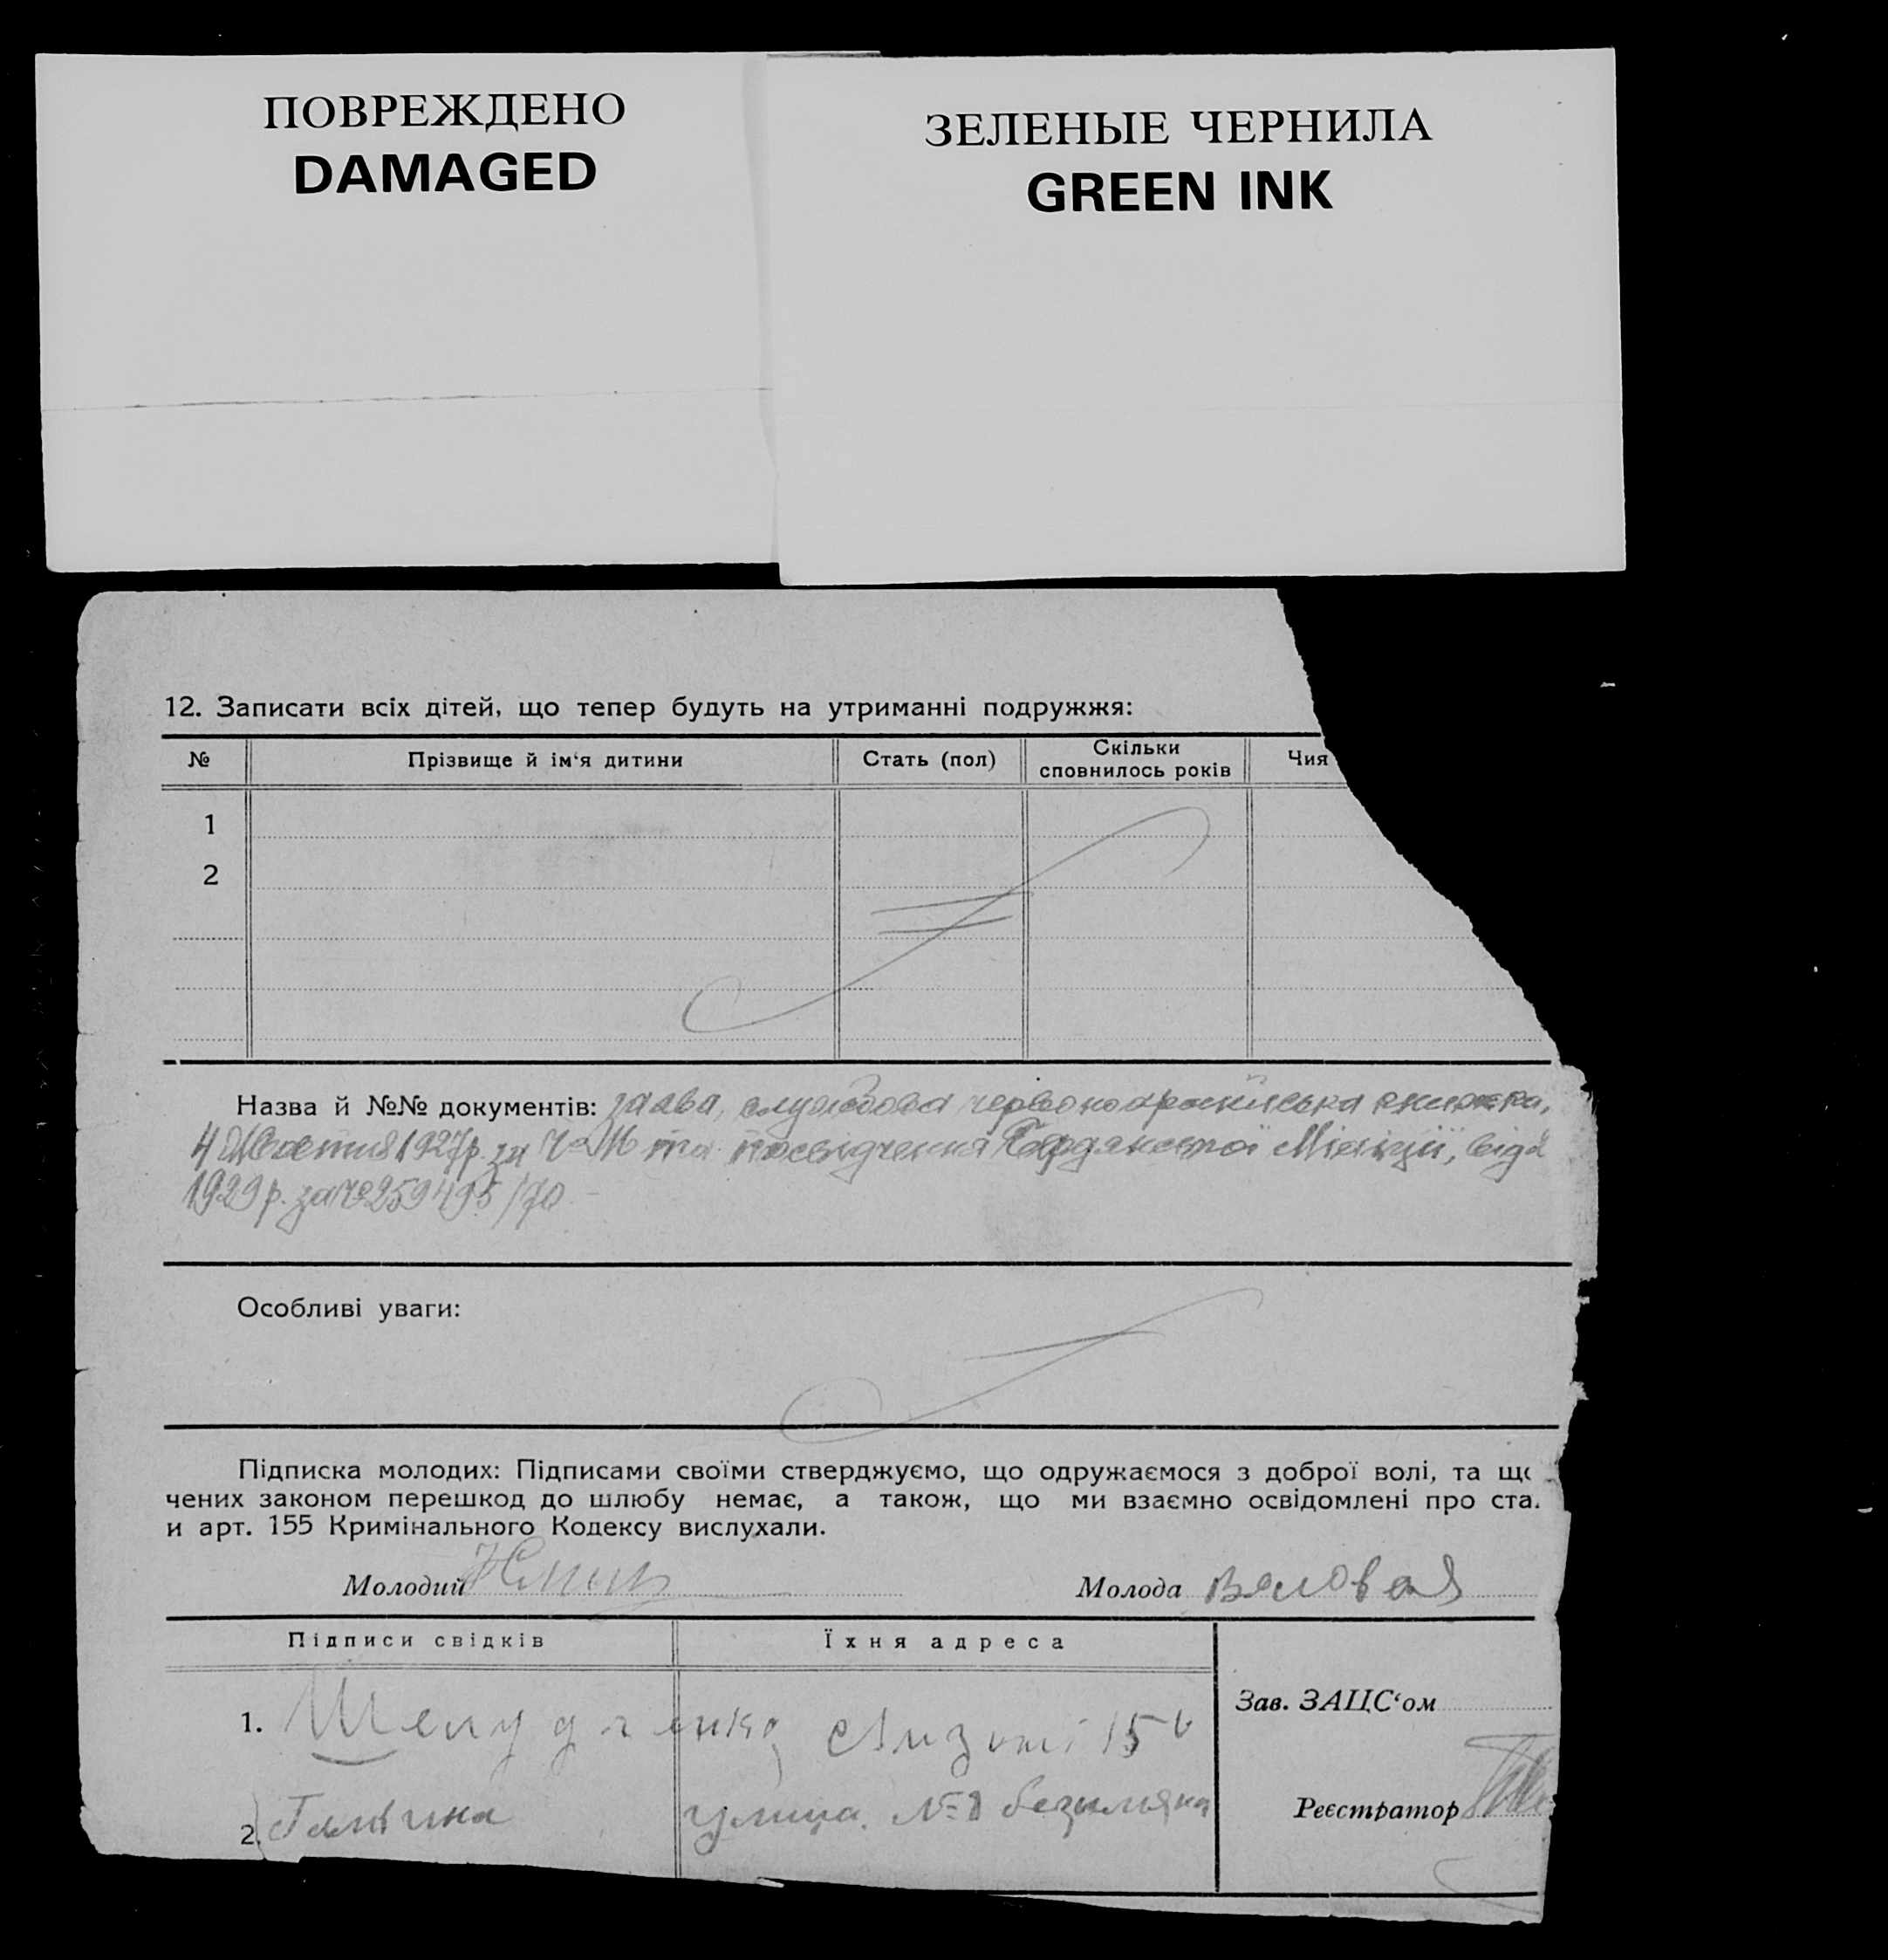 ПОВРЕЖДЕНО
DAMAGED
ЗЕЛЕНЫЕ ЧЕРНИЛА
GREEN INK
12. Записати всіх дітей, що тепер будуть на утриманні подружжя:
№ Прізвище й ім‘я дитини Стать (пол) Скільки сповнилось років Чия
1
2
Назва й №№ документів: заява, службова червоноармійська книжка,
4 Жовтня 1927р. за та посвідчення Бердянської Міліції, від
1929 р. за № 259495/70
Особливі уваги:
Підписка молодих: Підписами своїми стверджуємо, що одружаємося з доброї волі, та що
чених законом перешкод до шлюбу немає, а також, що ми взаємно освідомлені про ста
и арт. 155 Кримінального Кодексу вислухали.
Молодий Молода Валовая
Підписи свідків Їхня адреса
Зав. ЗАЦС‘ом
1. 15
Реєстратор
2. улица №